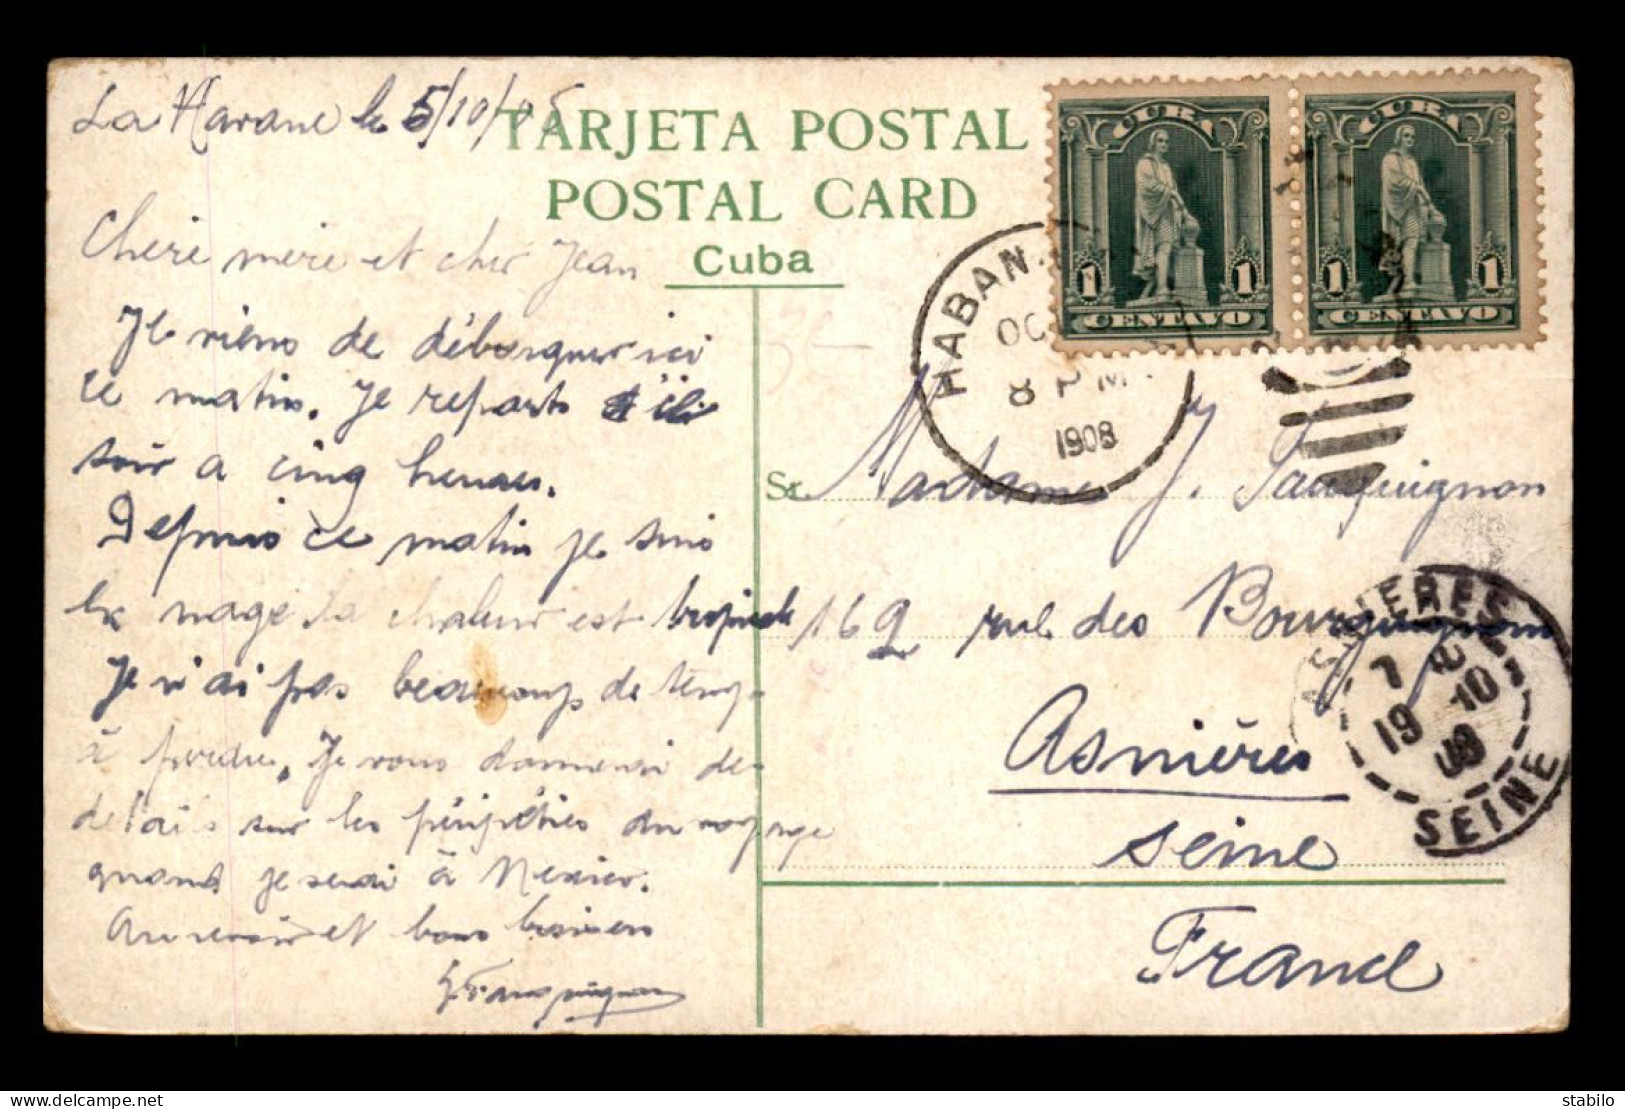 La Havane le 5/10/08
TARJETA POSTAL
POSTAL CARD
Cuba
Chère mère et cher Jean
Je viens de débarquer ici
ce matin. Je reparts ici
soir a cinq heures.
Depuis ce matin je suis
en nage la chaleur est tropicale
Je n'ai pas beaucoup de temps
à perdre. Je vous donnerai des
détails sur les péripéties du voyage
quand je serai à Mexico.
Au revoir et bons baisers
CUBA
1 1
CENTAVO
CUBA
1 1
CENTAVO
HABANA
OC
8 PM
1908
Sr. Madame J. Fauquignon
169 rue des Bourguignons
Asnières
Seine
France
ASNIERES
7
19 10
08
SEINE
stabilo
delcampe.net